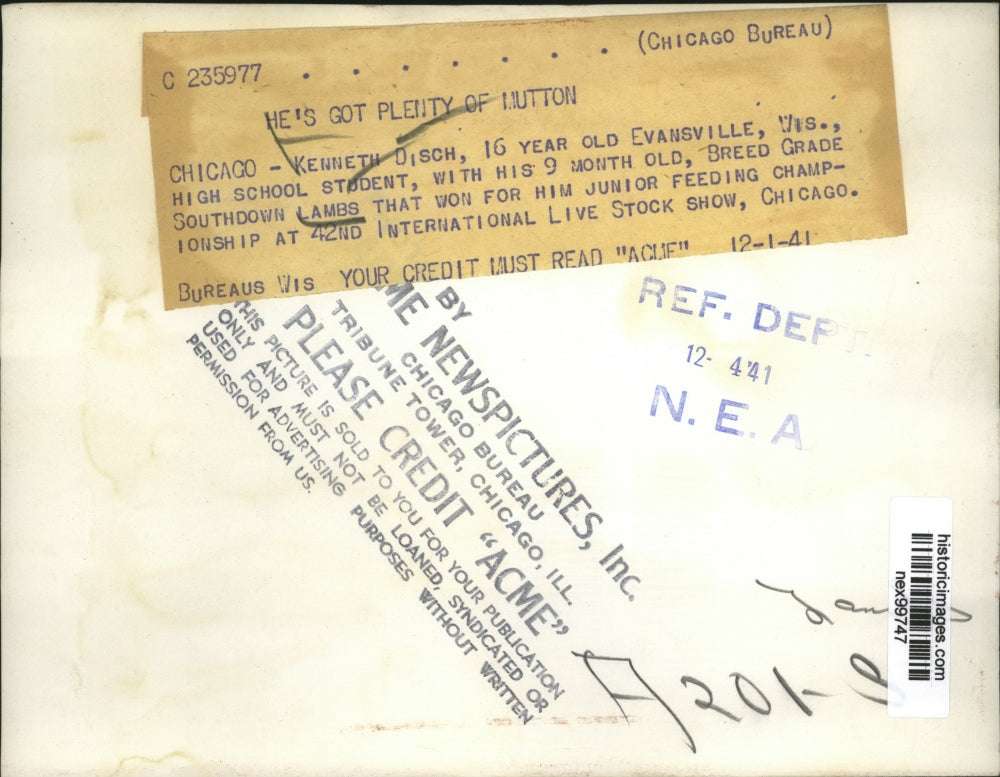 C 235977 . . . . . . . (CHICAGO BUREAU)
HE'S GOT PLENTY OF MUTTON
CHICAGO - KENNETH DISCH, 16 YEAR OLD EVANSVILLE, WIS.,
HIGH SCHOOL STUDENT, WITH HIS 9 MONTH OLD, BREED GRADE
SOUTHDOWN LAMBS THAT WON FOR HIM JUNIOR FEEDING CHAMP-
IONSHIP AT 42ND INTERNATIONAL LIVE STOCK SHOW, CHICAGO.
BUREAUS WIS YOUR CREDIT MUST READ "ACME" 12-1-41
BY
ME NEWSPICTURES, Inc.
CHICAGO BUREAU
TRIBUNE TOWER, CHICAGO, ILL.
PLEASE CREDIT "ACME"
THIS PICTURE IS SOLD TO YOU FOR YOUR PUBLICATION
ONLY AND MUST NOT BE LOANED, SYNDICATED OR
USED FOR ADVERTISING PURPOSES WITHOUT WRITTEN
PERMISSION FROM US.
REF. DEPT.
12- 4'41
N. E. A
historicimages.com
nex99747